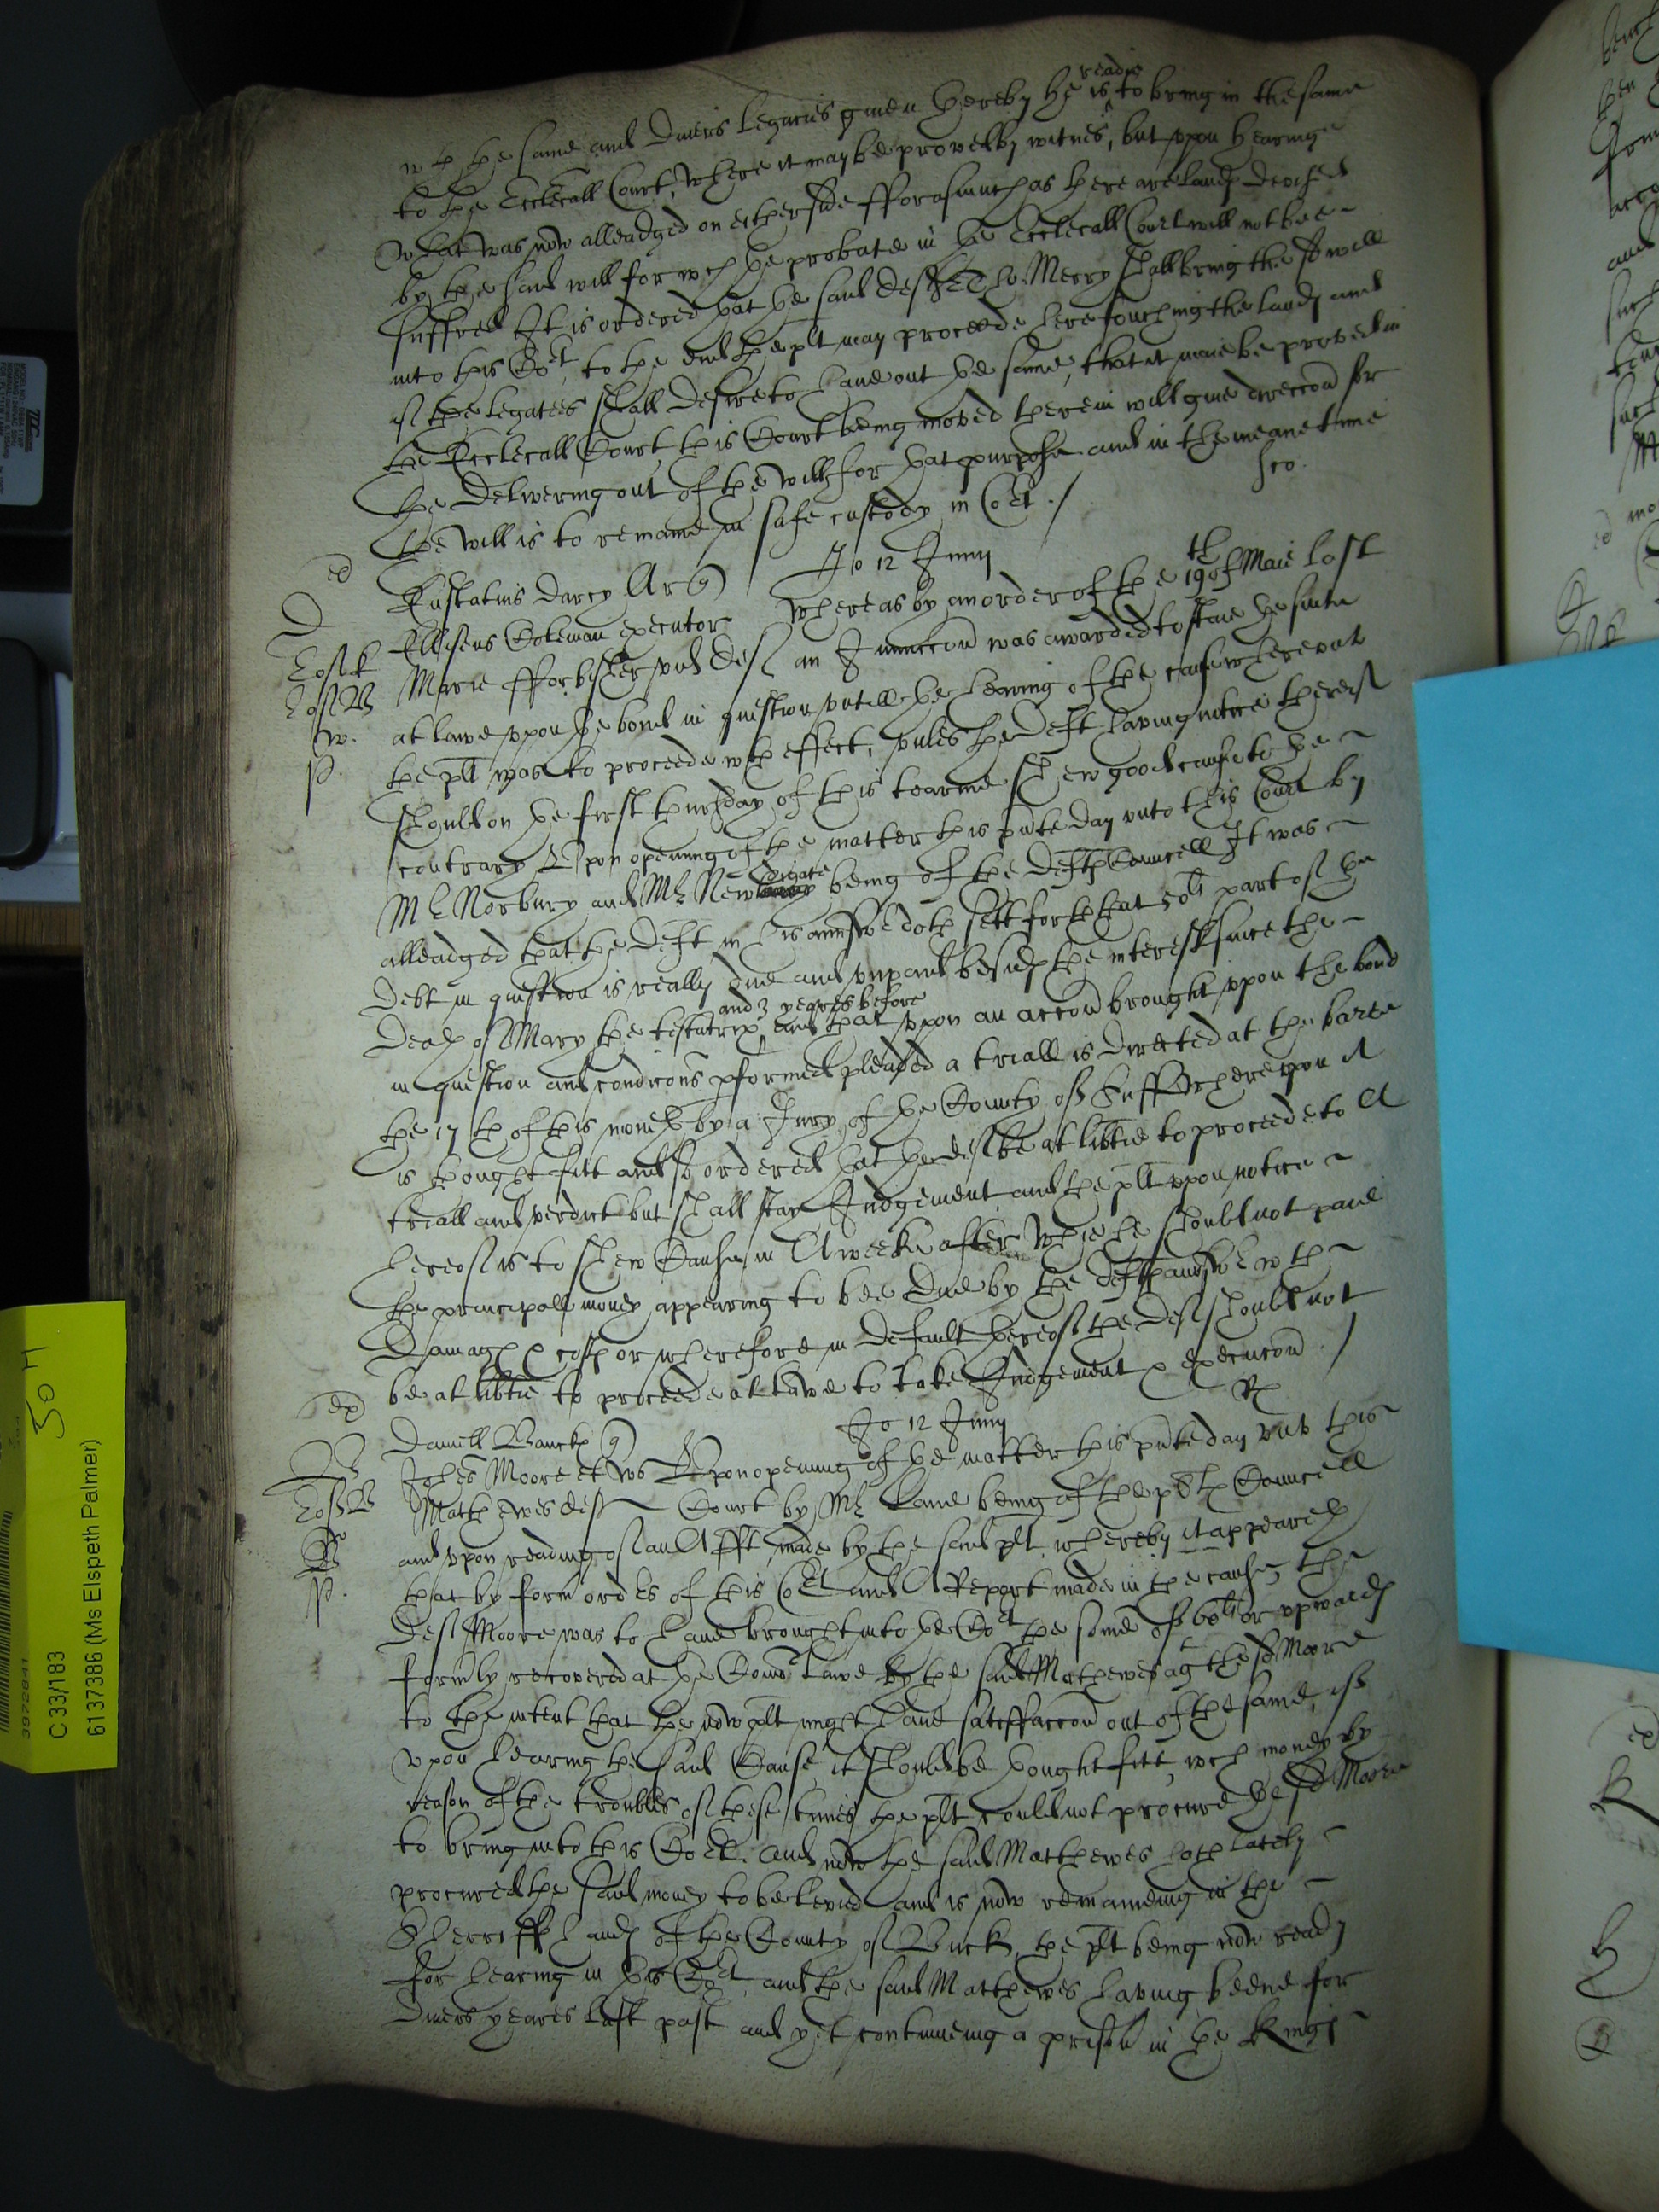 wth the same and divers legacies given thereby he is readie to bring in the same
to the Eccl̃icall Court, where it may be proved by witnes, but upon hearinge
what was now alleadged on either side fforasmuch as there are lands devised
by the said will for wch the probate in the Eccl̃icall Court will not bee
suffred It is ordered that the said deft Merry shall bring the sd will
into this Cort, to the end the plt may proceede here touching the lands and
if the legatees shall desire to have out the same, that it maie be proved in
the Eccl̃icall Court this Court being moved therein will give direccon for
the delivering out of the will for that purpose and in the meane time
the will is to remaine in safe custody in Cort ./
Jo 12 Junij
Eustatius Darcy Ar q
Whereas by an order of the 19th of Maie last
Elliseus Coleman executor
Marie fforbisher vid def
an Iniunccon was awarded to staie the suite
at lawe upon the bond in question untill the hearing of the cause whereunto
the plt was to proceede wth effect, unles the deft having notice thereof
should on the first thursday of this tearme shew good cause to the
contrary Upon opening of the matter this pñte day unto this Court by
Mr Norbury and Mr Newdigate being of the defts Councell It was
alleadged that the deft in his answe doth sett forth that 50li part of the
debt in question is really due and unpaid besids the interest since the
death of Mary the testatrix and 3 yeares before and that upon an accon brought upon the bond
in question and condicons pformed pleaded a triall is directed at the barre
the 17th of this moneth by a Jury of the County of Suff Whereupon it
is thought fitt and so ordered that the def be at libtie to proceede to a
triall and verdict but shall stay Judgement and the plt upon notice
hereof is to shew Cause in a weeke after Why he should not paie
the principall money appearing to bee due by the defts answer wth
Damags & costs or wherefore in default thereof the def should not
be at libtie to proceede at lawe to take Judgement & execucon ./
Jo 12 Junij
Daniell Bancks q
Johes Moore et Ws
Upon opening of the matter this pñte day unto this
Mathewes def
Court by Mr Lane being of the plts Councell
and upon reading of an Afft made by the said plt whereby it appeareth
that by formr ordrs of this Cort and a Report made in the cause, the
def Moore was to have brought into the Cort the some of 60li or upwards
formly recovered at the Comon lawe by the said Mathewes agt the sd Moore
to the intent that the now plt might have satisffaccon out of the same, if
upon hearing the said Cause it should be thought fitt, wch money by
reason of the troubles of these times the plt could not procure the sd Moore
to bring into this Cort. And now the said Matthewes hath lately
procured the said money to be levied and is now remaineing in the
Sherriffs hands of the County of Bucks, the plt being now ready
for hearing in this Cort, and the said Mathewes having beene for
divers yeares last past and yet continueing a prison in the Kings
C 33/183
6137386 (Ms Elspeth Palmer)
3972841